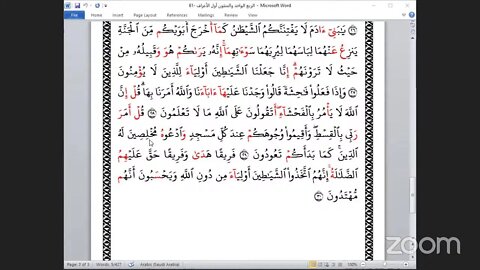 81- الربع الواحد والستون أول الأعراف - Microsoft Word
Home Insert Page Layout References Mailings Review View
يَٰبَنِيٓ ءَادَمَ لَا يَفْتِنَنَّكُمُ ٱلشَّيْطَٰنُ كَمَآ أَخْرَجَ أَبَوَيْكُم مِّنَ ٱلْجَنَّةِ
يَنزِعُ عَنْهُمَا لِبَاسَهُمَا لِيُرِيَهُمَا سَوْءَٰتِهِمَآ إِنَّهُۥ يَرَىٰكُمْ هُوَ وَقَبِيلُهُۥ مِنْ
حَيْثُ لَا تَرَوْنَهُمْ إِنَّا جَعَلْنَا ٱلشَّيَٰطِينَ أَوْلِيَآءَ لِلَّذِينَ لَا يُؤْمِنُونَ
وَإِذَا فَعَلُوا۟ فَٰحِشَةً قَالُوا۟ وَجَدْنَا عَلَيْهَآ ءَابَآءَنَا وَٱللَّهُ أَمَرَنَا بِهَا قُلْ إِنَّ
ٱللَّهَ لَا يَأْمُرُ بِٱلْفَحْشَآءِ أَتَقُولُونَ عَلَى ٱللَّهِ مَا لَا تَعْلَمُونَ ۝ قُلْ أَمَرَ
رَبِّي بِٱلْقِسْطِ وَأَقِيمُوا۟ وُجُوهَكُمْ عِندَ كُلِّ مَسْجِدٍ وَٱدْعُوهُ مُخْلِصِينَ لَهُ
ٱلدِّينَ كَمَا بَدَأَكُمْ تَعُودُونَ ۝ فَرِيقًا هَدَىٰ وَفَرِيقًا حَقَّ عَلَيْهِمُ
ٱلضَّلَٰلَةُ إِنَّهُمُ ٱتَّخَذُوا۟ ٱلشَّيَٰطِينَ أَوْلِيَآءَ مِن دُونِ ٱللَّهِ وَيَحْسَبُونَ أَنَّهُم
مُّهْتَدُونَ ۝
Arabic (Saudi Arabia)
zoom